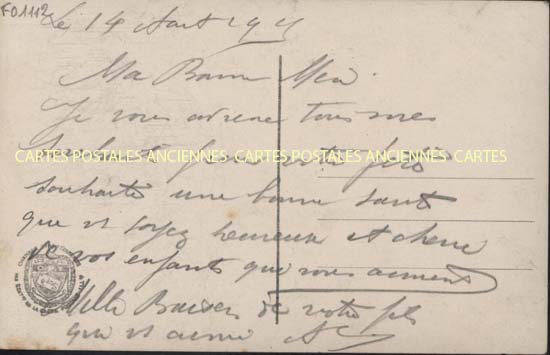 FO1112
Le 14 Aout 19
Ma Bonne
Je vous adresse tous mes
souhaits pour votre fete
CARTES POSTALES ANCIENNES CARTES POSTALES ANCIENNES CARTES
souhaite une bonne santé
que vs soyez heureuse et cherie
de vos enfants que vous aiment
Mille Baisers de votre fils
que vs aime